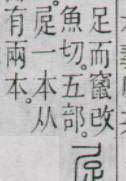 足而竄改
魚切。五部。
一本从
有兩本。